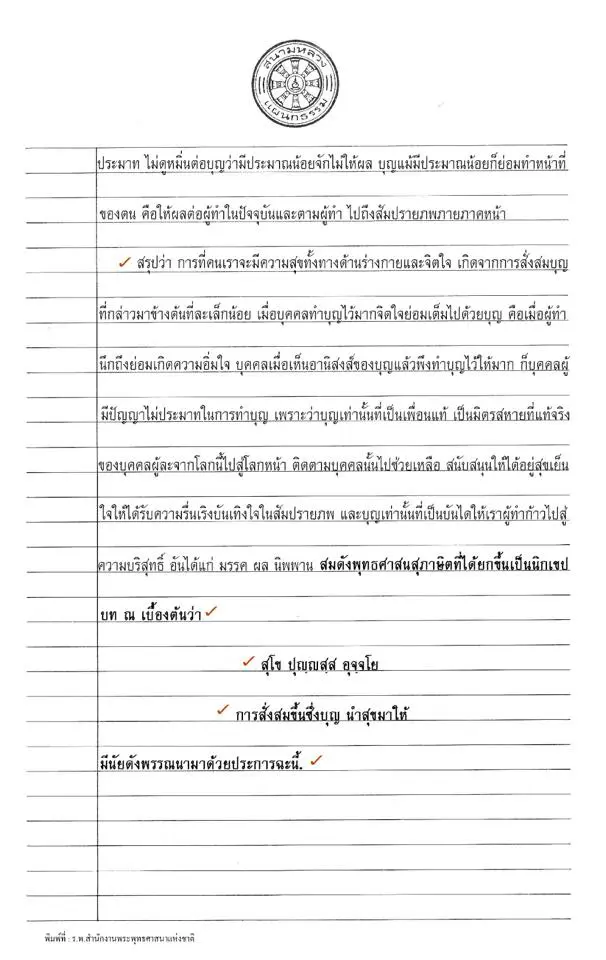 สนามหลวง
แผนกธรรม
ประมาท ไม่ดูหมิ่นต่อบุญว่ามีประมาณน้อยจักไม่ให้ผล บุญแม้มีประมาณน้อยก็ย่อมทำหน้าที่
ของตน คือให้ผลต่อผู้ทำในปัจจุบันและตามผู้ทำ ไปถึงสัมปรายภพภายภาคหน้า
✓ สรุปว่า การที่คนเราจะมีความสุขทั้งทางด้านร่างกายและจิตใจ เกิดจากการสั่งสมบุญ
ที่กล่าวมาข้างต้นทีละเล็กน้อย เมื่อบุคคลทำบุญไว้มากจิตใจย่อมเต็มไปด้วยบุญ คือเมื่อผู้ทำ
นึกถึงย่อมเกิดความอิ่มใจ บุคคลเมื่อเห็นอานิสงส์ของบุญแล้วพึงทำบุญไว้ให้มาก ก็บุคคลผู้
มีปัญญาไม่ประมาทในการทำบุญ เพราะว่าบุญเท่านั้นที่เป็นเพื่อนแท้ เป็นมิตรสหายที่แท้จริง
ของบุคคลผู้ละจากโลกนี้ไปสู่โลกหน้า ติดตามบุคคลนั้นไปช่วยเหลือ สนับสนุนให้ได้อยู่สุขเย็น
ใจให้ได้รับความรื่นเริงบันเทิงใจในสัมปรายภพ และบุญเท่านั้นที่เป็นบันไดให้เราผู้ทำก้าวไปสู่
ความบริสุทธิ์ อันได้แก่ มรรค ผล นิพพาน สมดังพุทธศาสนสุภาษิตที่ได้ยกขึ้นเป็นนิกเขป
บท ณ เบื้องต้นว่า ✓
✓ สุโข ปุญฺญสฺส อุจฺจโย
✓ การสั่งสมขึ้นซึ่งบุญ นำสุขมาให้
มีนัยดังพรรณนามาด้วยประการฉะนี้. ✓
พิมพ์ที่ : ร.พ.สำนักงานพระพุทธศาสนาแห่งชาติ